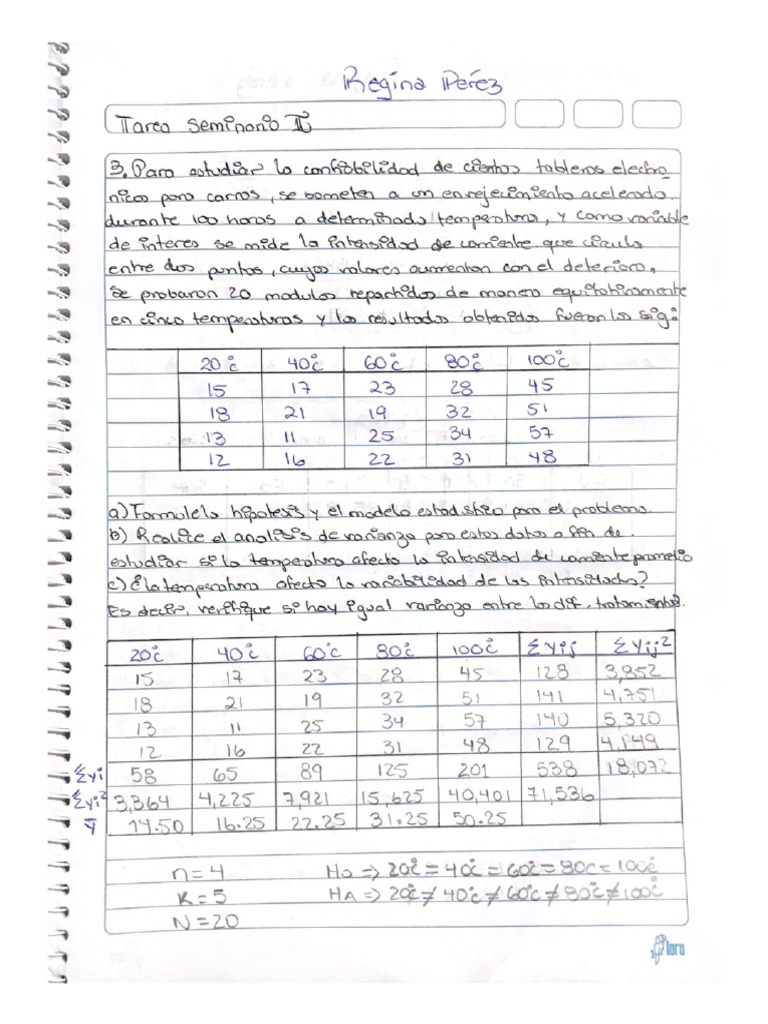 Regina Perez
Tarea Seminario II
3. Para estudiar la confiabilidad de ciertos tableros electro_
nicos para carros, se someten a un envejecimiento acelerado
durante 100 horas a determinada temperatura, y como variable
de interes se mide la intensidad de corriente que circula
entre dos puntos, cuyos valores aumentan con el deterioro.
Se probaron 20 modulos repartidos de manera equitativamente
en cinco temperaturas y los resultados obtenidos fueron los sig:
20°c 40°c 60°c 80°c 100°c
15 17 23 28 45
18 21 19 32 51
13 11 25 34 57
12 16 22 31 48
a) Formule la hipotesis y el modelo estadistico para el problema.
b) Realice el analisis de varianza para estos datos a fin de
estudiar si la temperatura afecta la intensidad de corriente promedio
c) ¿la temperatura afecta la variabilidad de las intensidades?
Es decir, verifique si hay igual varianza entre los dif. tratamientos.
20°c 40°c 60°c 80°c 100°c Σyij Σyij²
15 17 23 28 45 128 3,852
18 21 19 32 51 141 4,751
13 11 25 34 57 140 5,320
12 16 22 31 48 129 4,149
Σyi 58 65 89 125 201 538 18,072
Σyi² 3,364 4,225 7,921 15,625 40,401 71,536
ȳ 14.50 16.25 22.25 31.25 50.25
n=4 Ho => 20°c = 40°c = 60°c = 80c = 100°c
K=5 HA => 20°c ≠ 40°c ≠ 60°c ≠ 80°c ≠ 100°c
N=20
loro